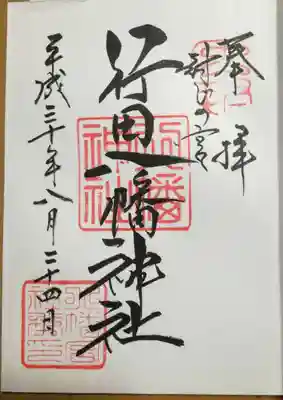 奉拝
封じの宮
行田八幡神社
八幡神社
平成三十年八月二十四日